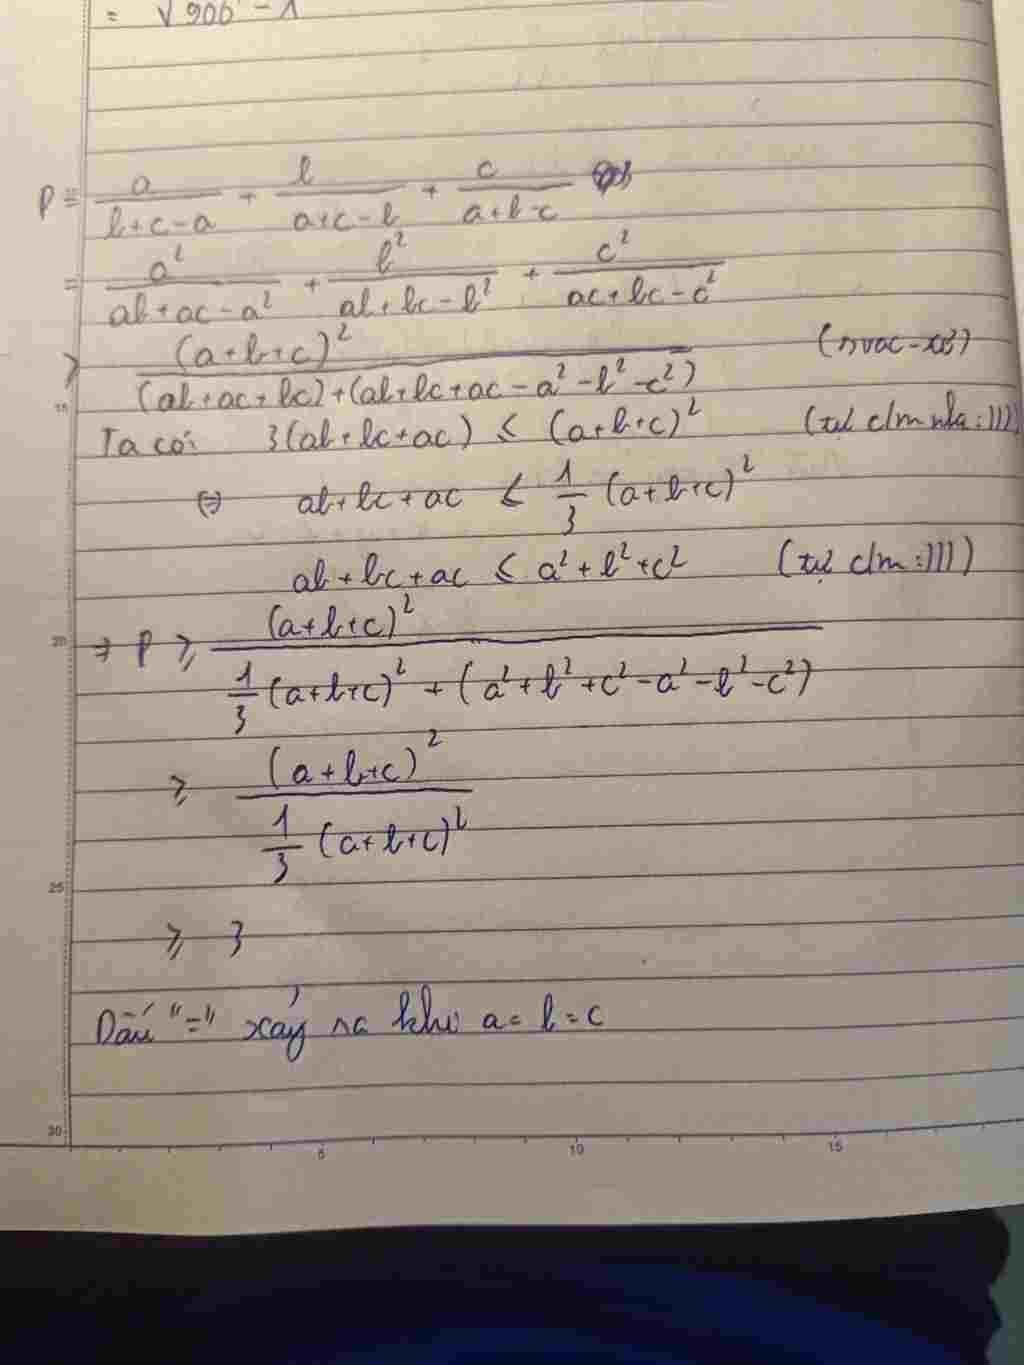 = √906 - 1
P = a/(b+c-a) + b/(a+c-b) + c/(a+b-c)
= a²/(ab+ac-a²) + b²/(ab+bc-b²) + c²/(ac+bc-c²)
≥ (a+b+c)²/((ab+ac+bc)+(ab+bc+ac-a²-b²-c²)) (svac-xơ)
15
Ta có: 3(ab+bc+ac) ≤ (a+b+c)² (tự c/m nha :)))
⇔ ab+bc+ac ≤ 1/3 (a+b+c)²
ab+bc+ac ≤ a²+b²+c² (tự c/m :)))
20
⇒ P ≥ (a+b+c)²/(1/3 (a+b+c)² + (a²+b²+c²-a²-b²-c²))
≥ (a+b+c)²/(1/3 (a+b+c)²)
25
≥ 3
Dấu "=" xảy ra khi a=b=c
30
5 10 15